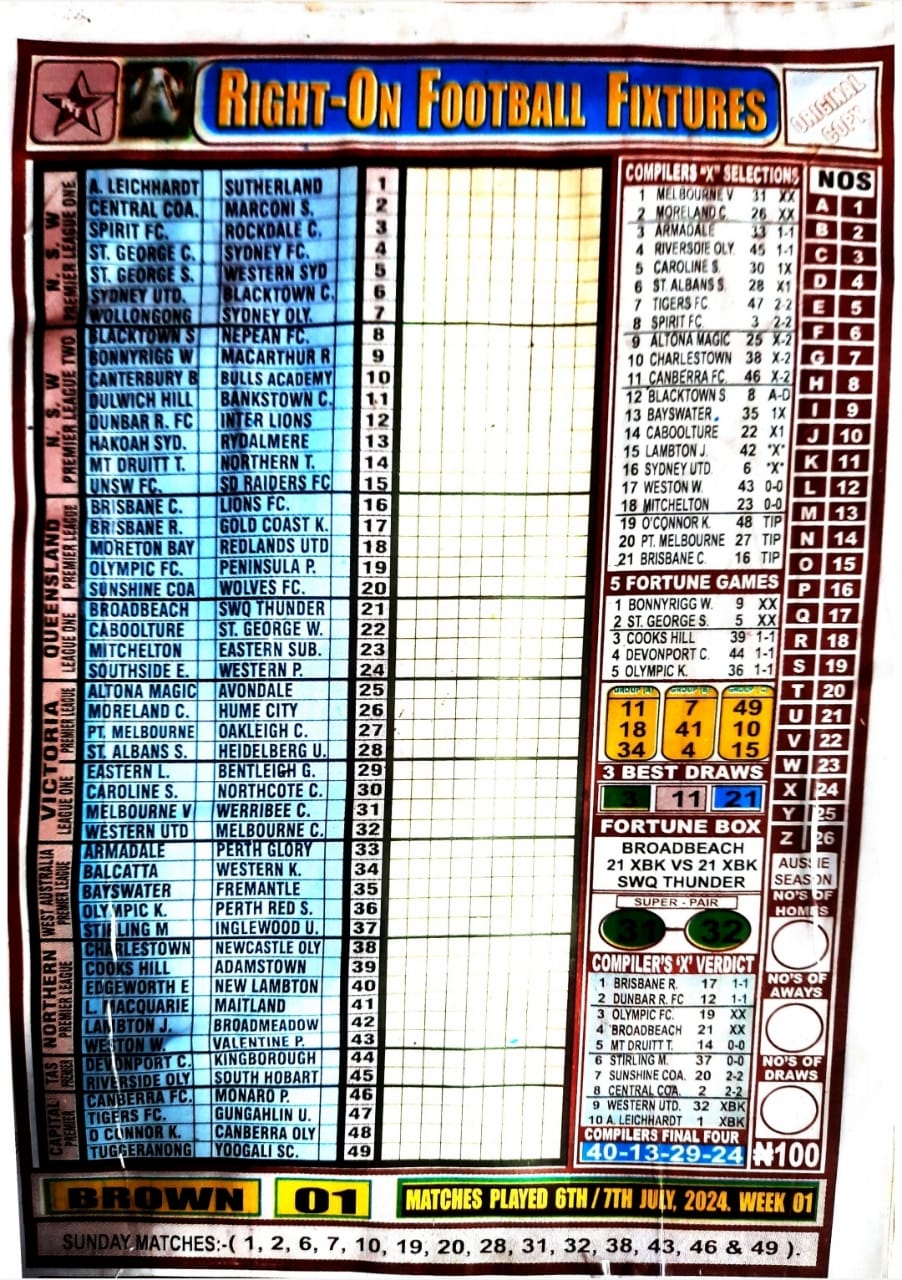 RIGHT-ON FOOTBALL FIXTURES
ORIGINAL
COPY
N. S. W
PREMIER LEAGUE ONE
A. LEICHHARDT SUTHERLAND 1
CENTRAL COA. MARCONI S. 2
SPIRIT FC. ROCKDALE C. 3
ST. GEORGE C. SYDNEY FC. 4
ST. GEORGE S. WESTERN SYD 5
SYDNEY UTD. BLACKTOWN C. 6
WOLLONGONG SYDNEY OLY. 7
N. S. W
PREMIER LEAGUE TWO
BLACKTOWN S NEPEAN FC. 8
BONNYRIGG W MACARTHUR R 9
CANTERBURY B BULLS ACADEMY 10
DULWICH HILL BANKSTOWN C. 11
DUNBAR R. FC INTER LIONS 12
HAKOAH SYD. RYDALMERE 13
MT DRUITT T. NORTHERN T. 14
UNSW FC. SD RAIDERS FC 15
QUEENSLAND
PREMIER LEAGUE
BRISBANE C. LIONS FC. 16
BRISBANE R. GOLD COAST K. 17
MORETON BAY REDLANDS UTD 18
OLYMPIC FC. PENINSULA P. 19
SUNSHINE COA WOLVES FC. 20
LEAGUE ONE
BROADBEACH SWQ THUNDER 21
CABOOLTURE ST. GEORGE W. 22
MITCHELTON EASTERN SUB. 23
SOUTHSIDE E. WESTERN P. 24
VICTORIA
PREMIER LEAGUE
ALTONA MAGIC AVONDALE 25
MORELAND C. HUME CITY 26
PT. MELBOURNE OAKLEIGH C. 27
ST. ALBANS S. HEIDELBERG U. 28
LEAGUE ONE
EASTERN L. BENTLEIGH G. 29
CAROLINE S. NORTHCOTE C. 30
MELBOURNE V WERRIBEE C. 31
WESTERN UTD MELBOURNE C. 32
WEST AUSTRALIA
PREMIER LEAGUE
ARMADALE PERTH GLORY 33
BALCATTA WESTERN K. 34
BAYSWATER FREMANTLE 35
OLYMPIC K. PERTH RED S. 36
STIRLING M INGLEWOOD U. 37
NORTHERN
PREMIER LEAGUE
CHARLESTOWN NEWCASTLE OLY 38
COOKS HILL ADAMSTOWN 39
EDGEWORTH E NEW LAMBTON 40
L. MACQUARIE MAITLAND 41
LAMBTON J. BROADMEADOW 42
WESTON W. VALENTINE P. 43
TAS
PREMIER
DEVONPORT C. KINGBOROUGH 44
RIVERSIDE OLY SOUTH HOBART 45
CAPITAL
PREMIER
CANBERRA FC. MONARO P. 46
TIGERS FC. GUNGAHLIN U. 47
O CONNOR K. CANBERRA OLY 48
TUGGERANONG YOOGALI SC. 49
COMPILERS "X" SELECTIONS
1 MELBOURNE V 31 XX
2 MORELAND C. 26 XX
3 ARMADALE 33 1-1
4 RIVERSDIE OLY. 45 1-1
5 CAROLINE S. 30 1X
6 ST ALBANS S. 28 X1
7 TIGERS FC 47 2-2
8 SPIRIT FC. 3 2-2
9 ALTONA MAGIC 25 X-2
10 CHARLESTOWN 38 X-2
11 CANBERRA FC. 46 X-2
12 BLACKTOWN S 8 A-D
13 BAYSWATER. 35 1X
14 CABOOLTURE 22 X1
15 LAMBTON J. 42 "X"
16 SYDNEY UTD. 6 "X"
17 WESTON W. 43 0-0
18 MITCHELTON 23 0-0
19 O'CONNOR K. 48 TIP
20 PT. MELBOURNE 27 TIP
21 BRISBANE C. 16 TIP
5 FORTUNE GAMES
1 BONNYRIGG W. 9 XX
2 ST. GEORGE S. 5 XX
3 COOKS HILL 39 1-1
4 DEVONPORT C. 44 1-1
5 OLYMPIC K. 36 1-1
GROUP A GROUP B GROUP C
11 7 49
18 41 10
34 4 15
3 BEST DRAWS
3 11 21
FORTUNE BOX
BROADBEACH
21 XBK VS 21 XBK
SWQ THUNDER
SUPER - PAIR
31 - 32
COMPILER'S 'X' VERDICT
1 BRISBANE R. 17 1-1
2 DUNBAR R. FC 12 1-1
3 OLYMPIC FC. 19 XX
4 BROADBEACH 21 XX
5 MT DRUITT T. 14 0-0
6 STIRLING M. 37 0-0
7 SUNSHINE COA. 20 2-2
8 CENTRAL COA. 2 2-2
9 WESTERN UTD. 32 XBK
10 A. LEICHHARDT 1 XBK
COMPILERS FINAL FOUR
40-13-29-24
NOS
A 1
B 2
C 3
D 4
E 5
F 6
G 7
H 8
I 9
J 10
K 11
L 12
M 13
N 14
O 15
P 16
Q 17
R 18
S 19
T 20
U 21
V 22
W 23
X 24
Y 25
Z 26
AUSSIE
SEASON
NO'S OF
HOMES
NO'S OF
AWAYS
NO'S OF
DRAWS
₦100
BROWN 01 MATCHES PLAYED 6TH / 7TH JULY, 2024. WEEK 01
SUNDAY MATCHES:-( 1, 2, 6, 7, 10, 19, 20, 28, 31, 32, 38, 43, 46 & 49 ).